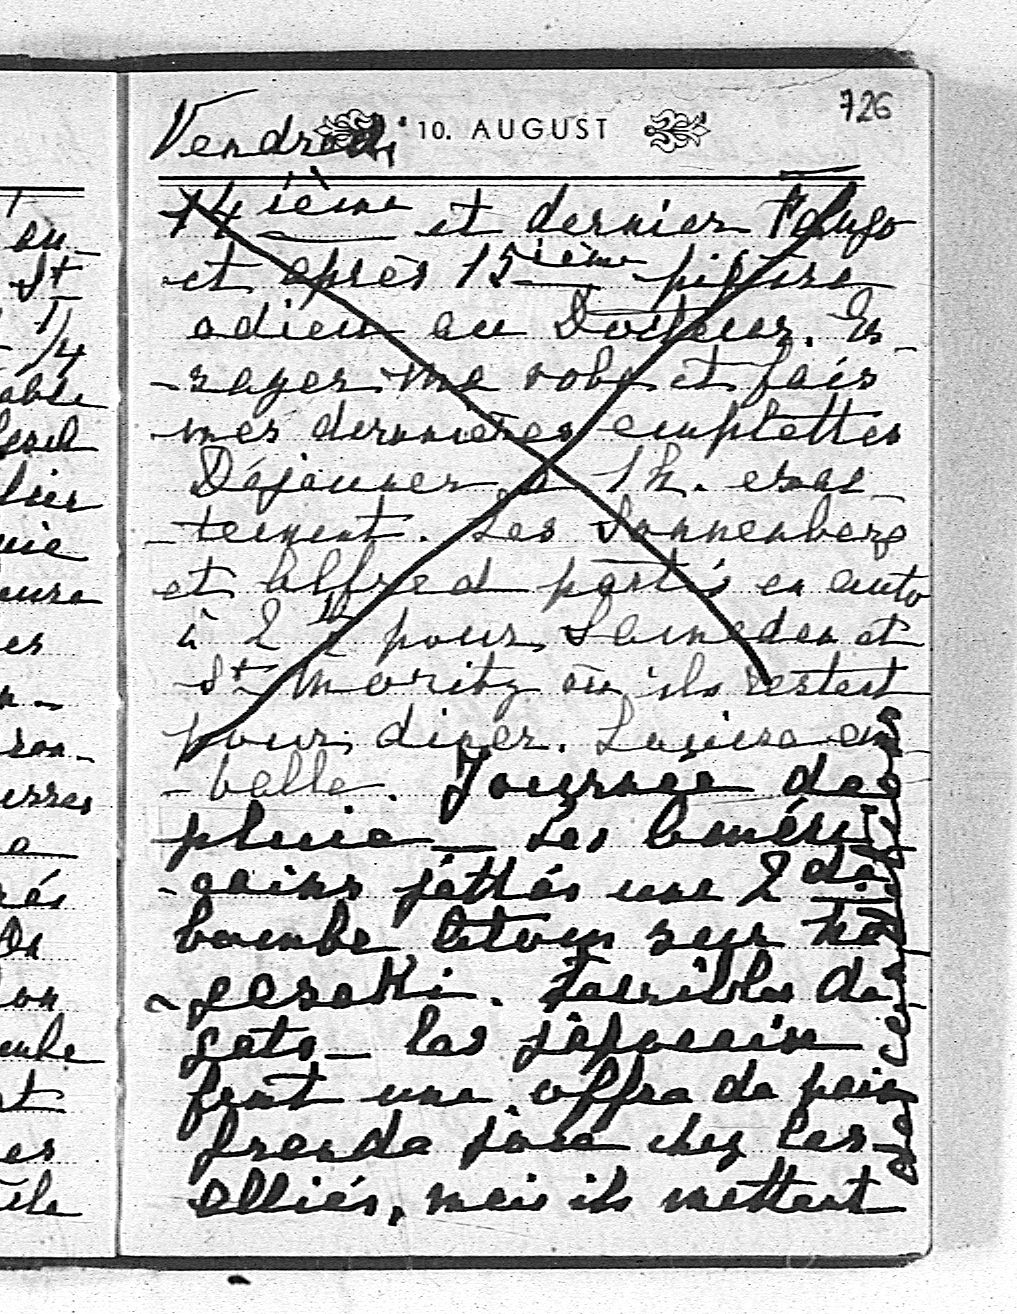 726
Vendredi 10. AUGUST
14 ième et dernier Fango
et après 15 ième piqûre
adieu au Docteur. Es-
-sayer ma robe et fais
mes dernières emplettes
Déjeuner à 1h. exac-
-tement. Les Sonnenberg
et Alfred partis en auto
à 2 h pour Samedan et
St Moritz où ils restent
pour diner. Louisa em-
-belle. Journée de
pluie — Les Améri-
-cains jettés une 2 de
bombe Atom sur Na-
-gasaki. Terribles dé-
gats — Les japonais
font une offre de paix
Grande joie chez les
Alliés, mais ils mettent
au
St
1/4
able